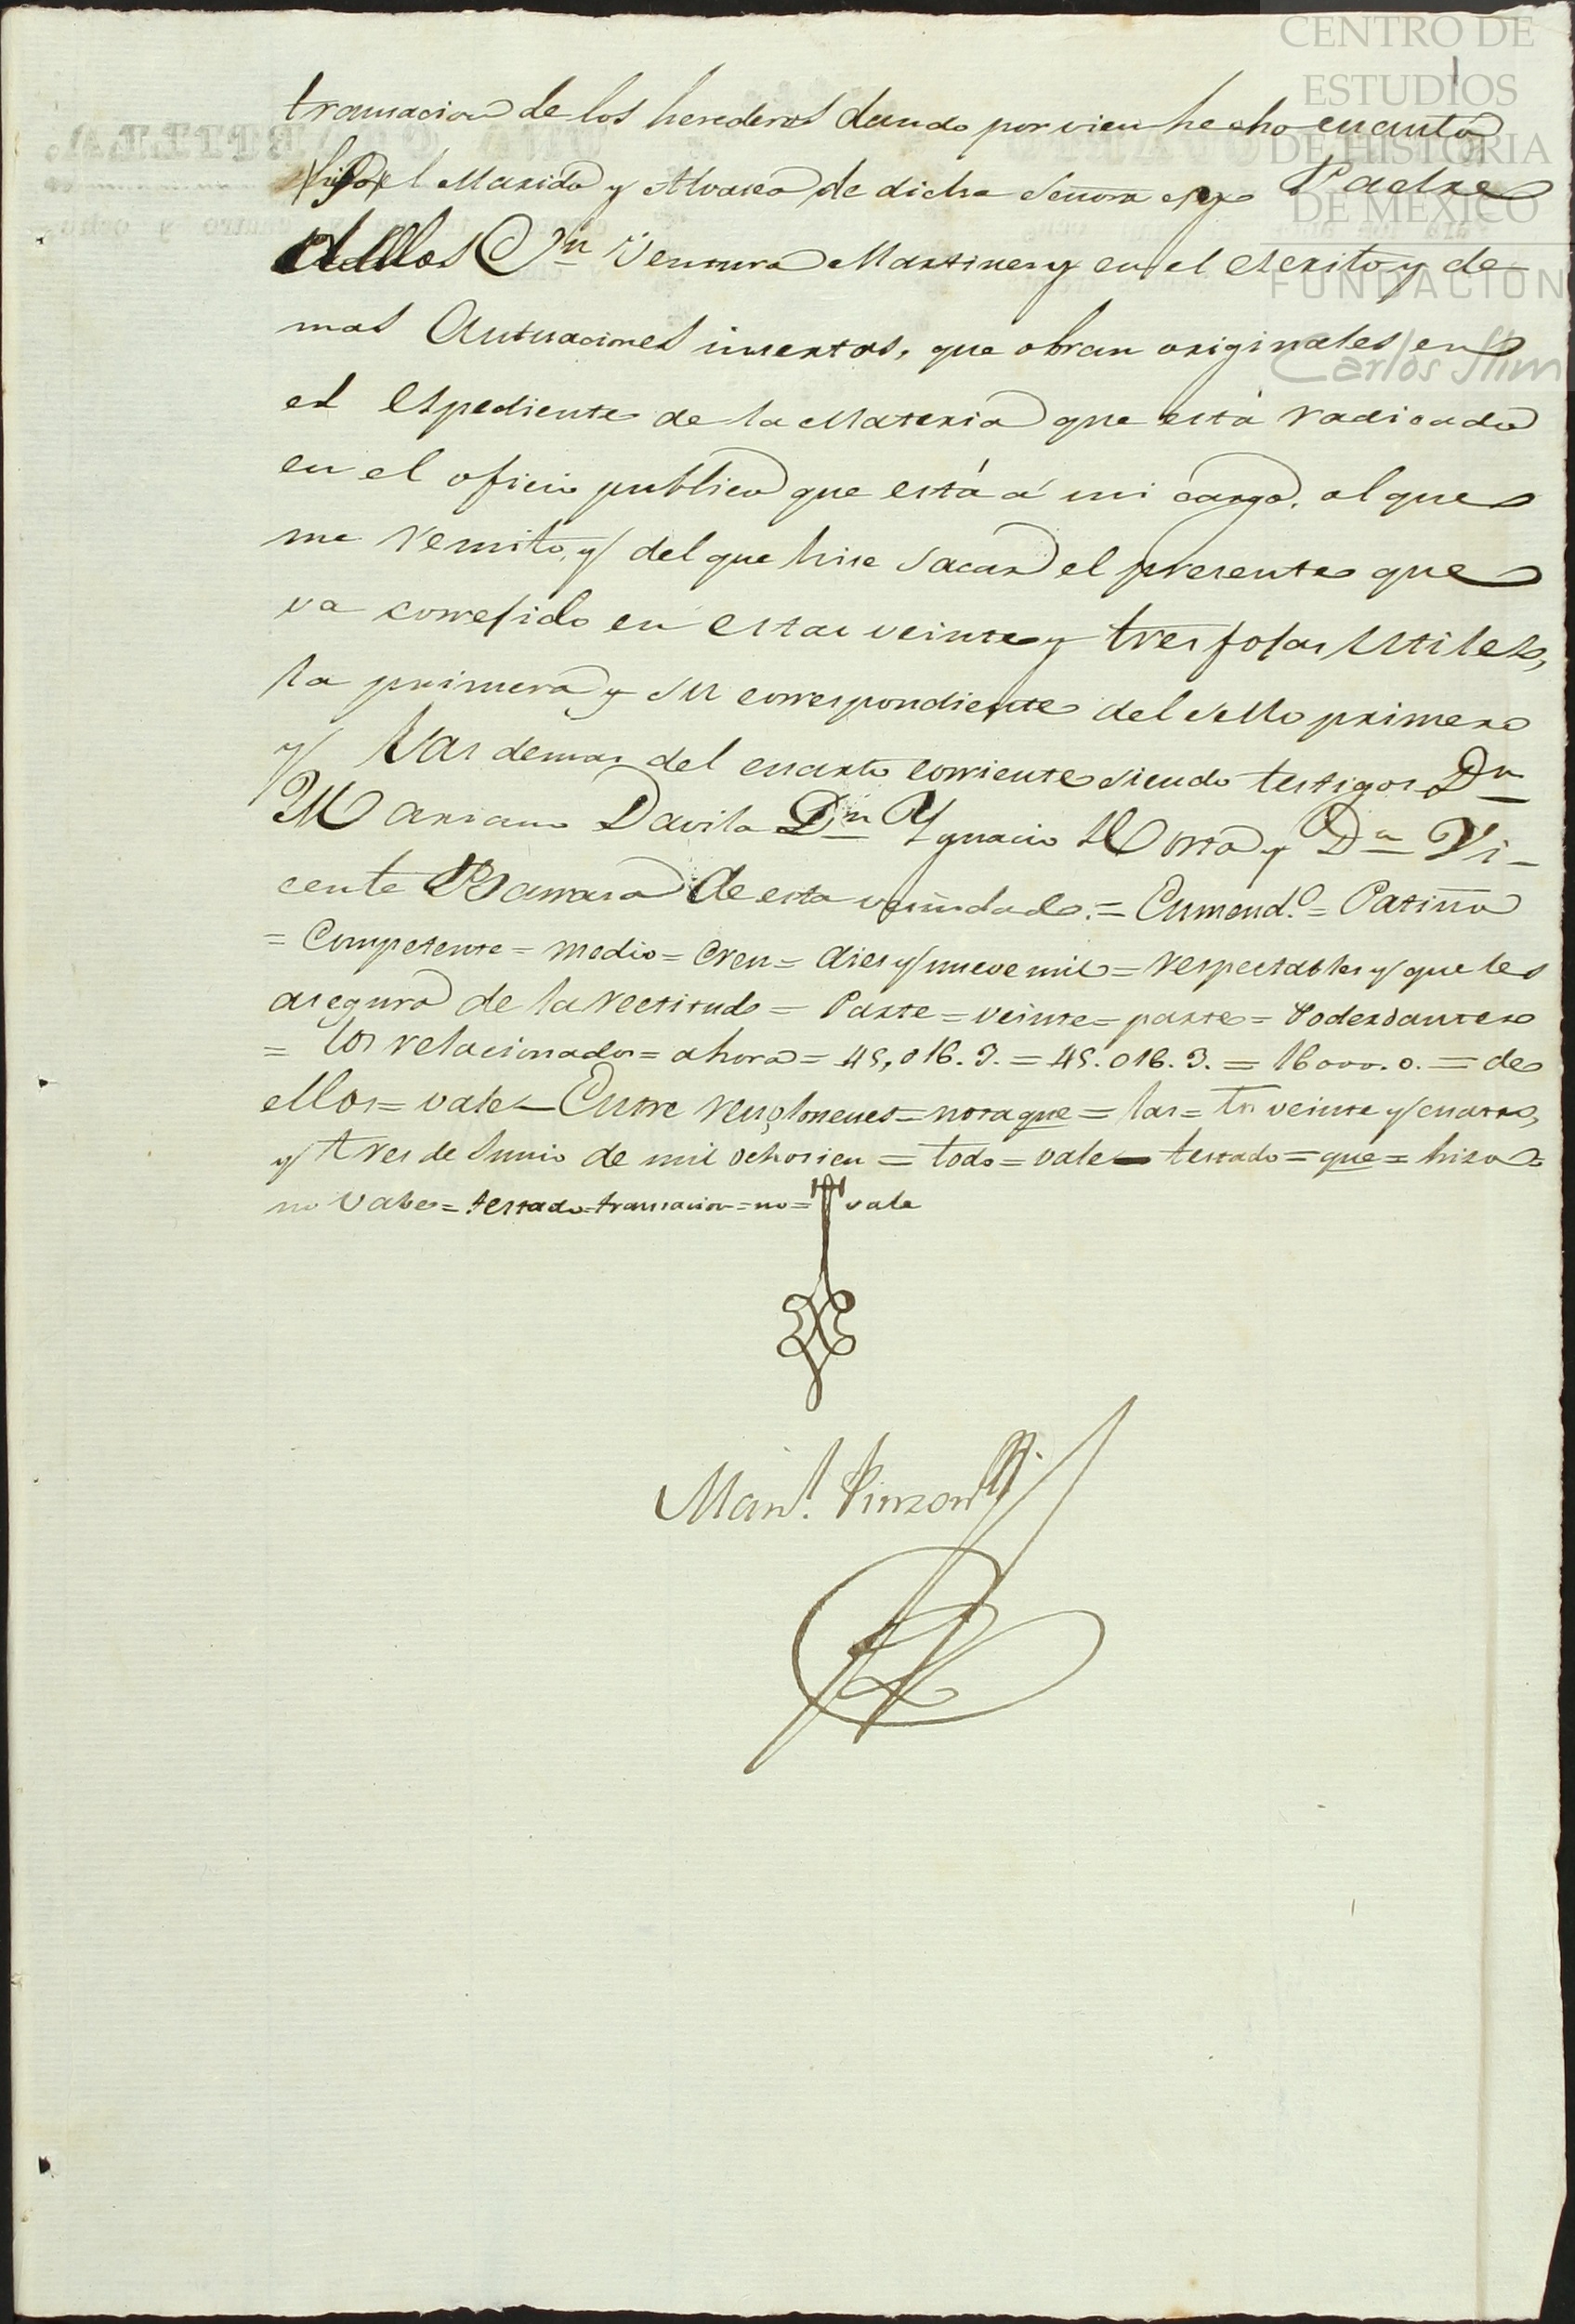 CENTRO DE
ESTUDIOS
DE HISTORIA
DE MÉXICO
FUNDACIÓN
Carlos Slim
transacion de los herederos dando por vien hecho cuanto
hiso el Marido y Alvacea de dicha Señora y Padre
de ellos Dn Ventura Martines y en el escrito y de
mas Autuaciones insertas, que obran originales en
el Espediente de la Materia que está radicado
en el oficio publico que está á mi cargo, al que
me remito, y del que hise sacar el presente que
va correjido en estas veinte y tres fojas utiles,
la primera y su correspondiente del sello primero
y las demas del cuarto corriente siendo testigos Dn
Mariano Davila Dn Ygnacio Dn Vi-
cente de esta vecindad. = Enmend.o = Patiño
= Competente = medio = Cren = dies y nueve mil = respectables y que les
asegura de la rectitud = Parte = veinte = parte = Poderdantes
= los relacionados = ahora = 45,016.3. = 45.016.3. = 16000.0. = de
ellos = vale = Entre renglones = nota que = las = tn veinte y cuatro,
y tres de Junio de mil ochosien = todo = vale = testado = que = hizo =
no vale = testado = transacion = no = vale
Man.l Pinzon